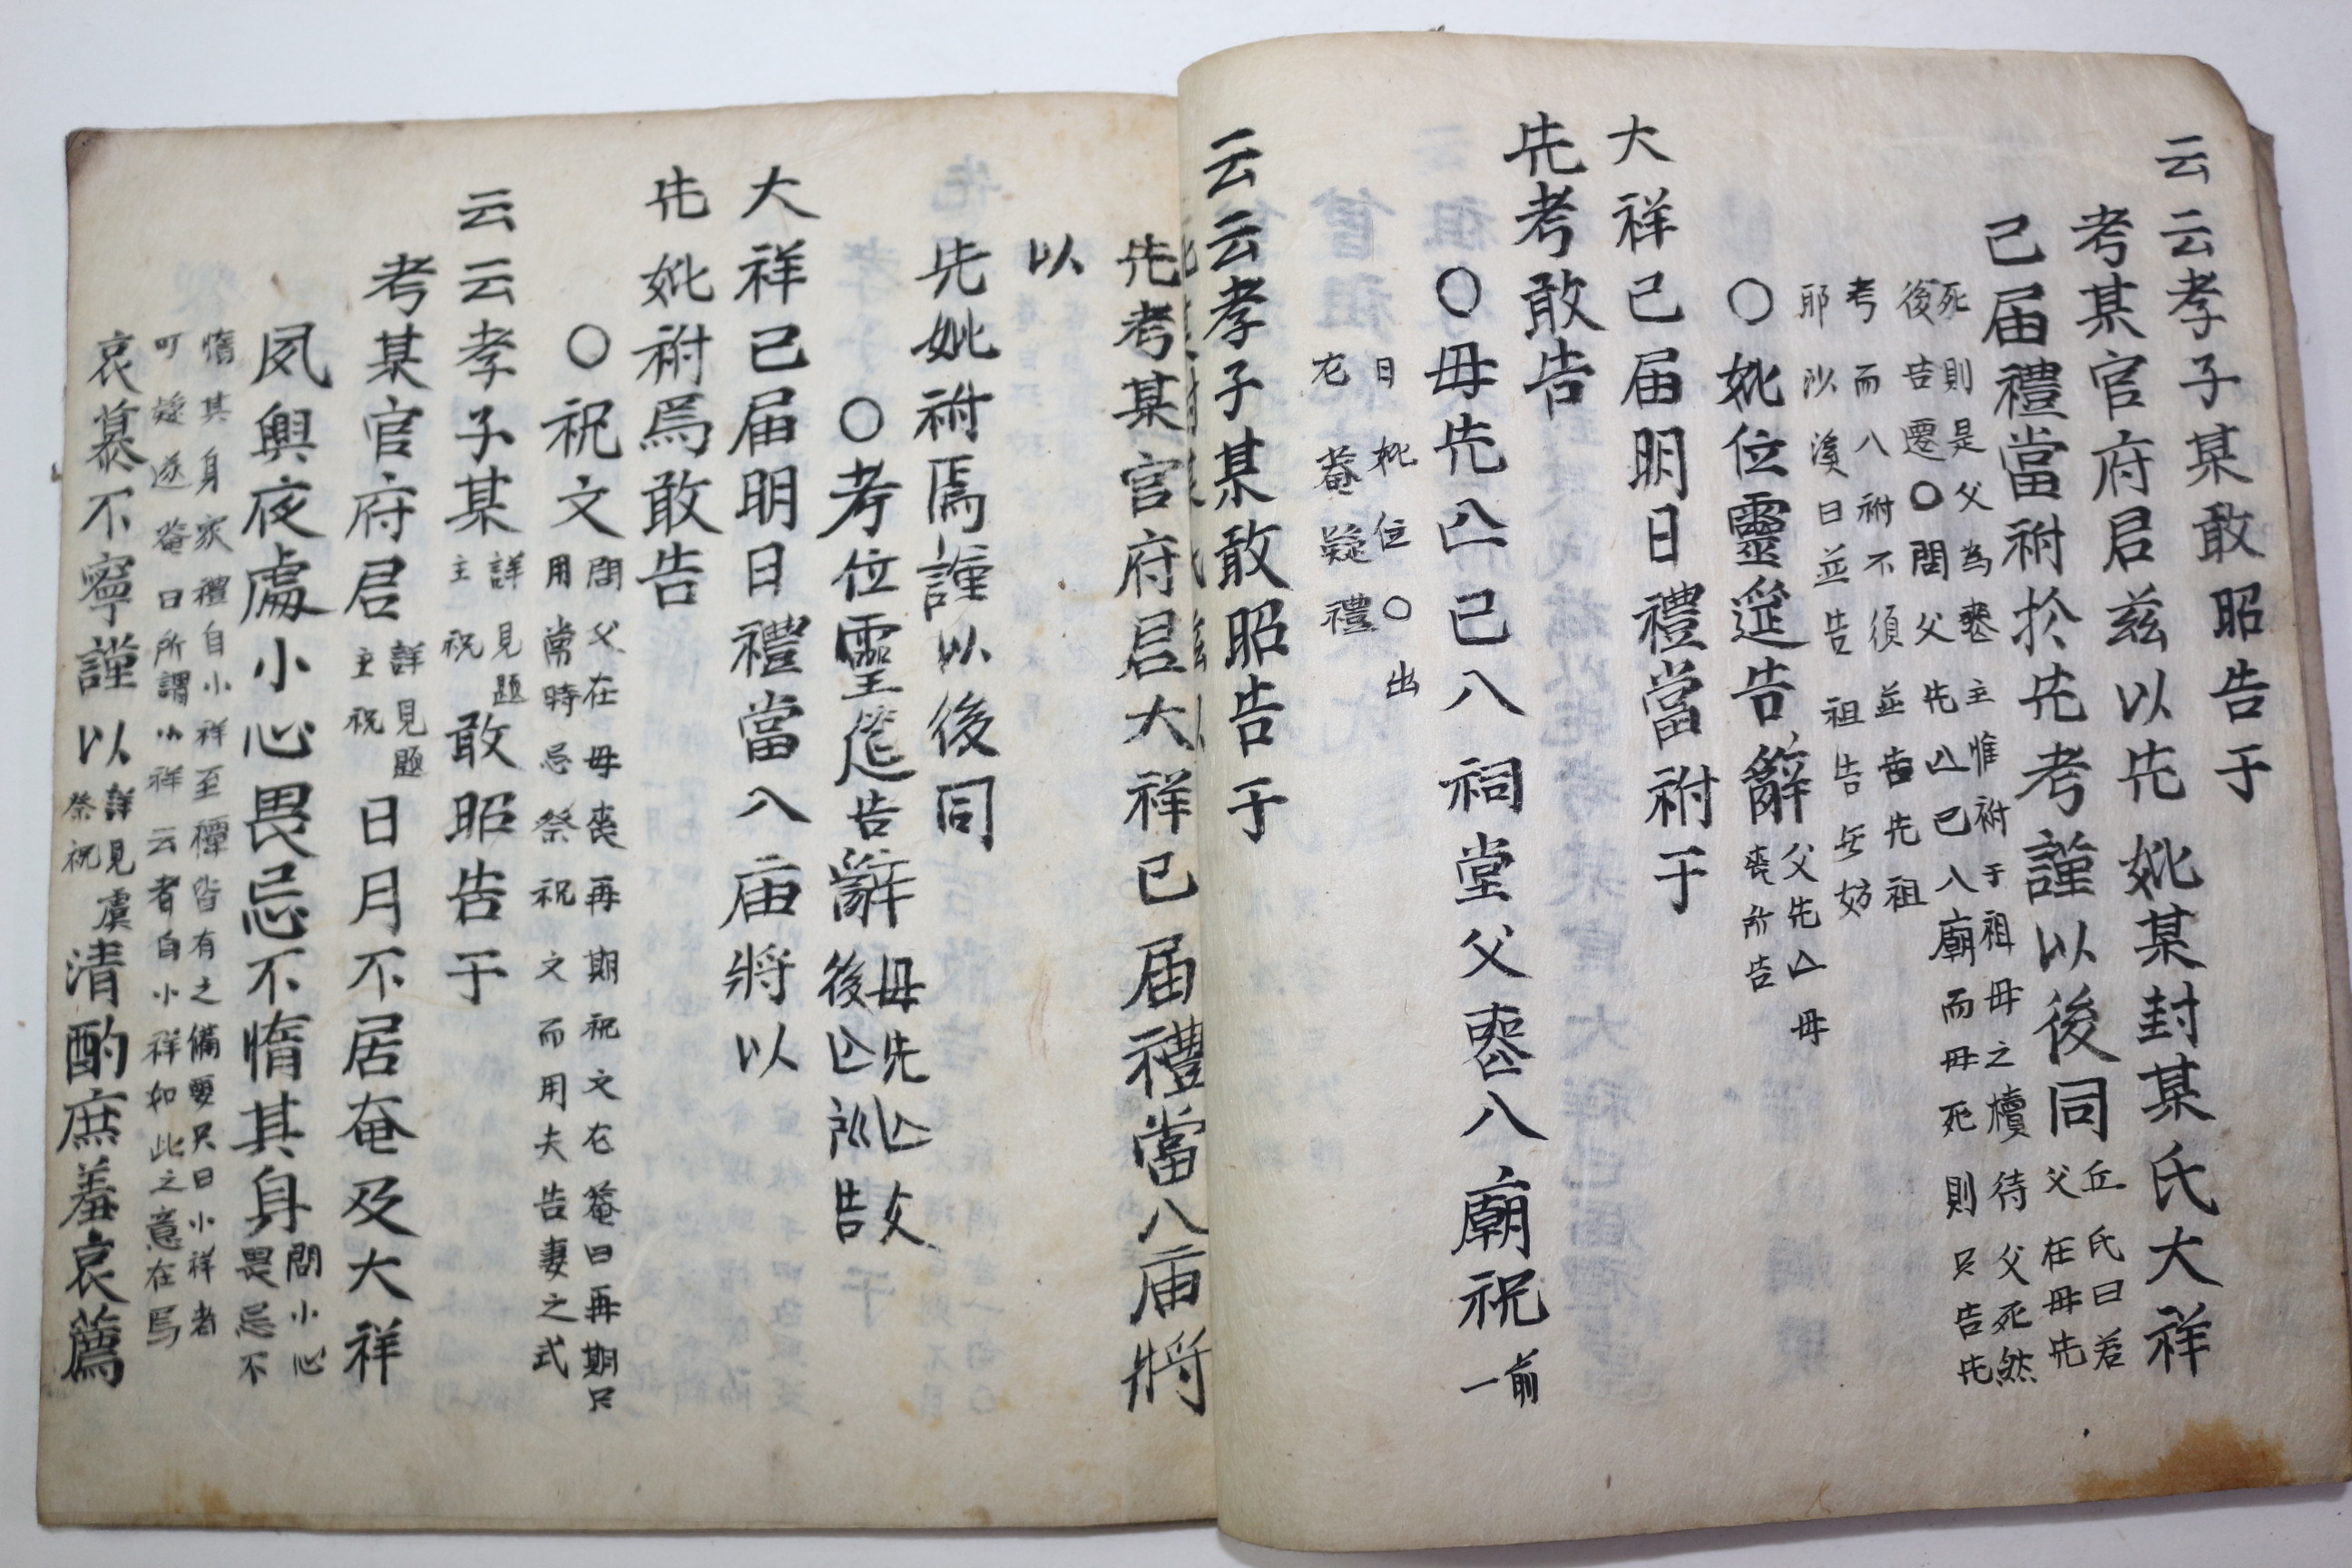 云云孝子某敢昭告于
考某官府君兹以先妣某封某氏大祥
已届禮當祔於先考謹以後同
丘氏曰若
父在母先
死則是父為喪主惟祔于祖母之櫝待父死然
後告遷○問父先亡已入廟而母死則只告先
考而入祔不須並告先祖
耶沙溪曰並告祖告無妨
○妣位靈筵告辭
父先亡母
喪所告
大祥已届明日禮當祔于
先考敢告
○母先亡已入祠堂父喪入廟祝
前
一
曰妣位○出
尤菴疑禮
云云孝子某敢昭告于
先考某官府君大祥已届禮當入庙將
以
先妣祔焉謹以後同
○考位靈筵告辭
母先亡父
後亡所告
大祥已届明日禮當入庙將以
先妣祔焉敢告
○祝文
問父在母喪再期祝文尤菴曰再期只
用常時忌祭祝文而用夫告妻之式
云云孝子某
詳見題
主祝
敢昭告于
考某官府君
詳見題
主祝
日月不居奄及大祥
夙興夜處小心畏忌不惰其身
問小心
畏忌不
惰其身家禮自小祥至禫皆有之備要只曰小祥者
可疑遂菴曰所謂小祥云者自小祥如此之意在焉
哀慕不寧謹以
詳見虞
祭祝
清酌庶羞哀薦